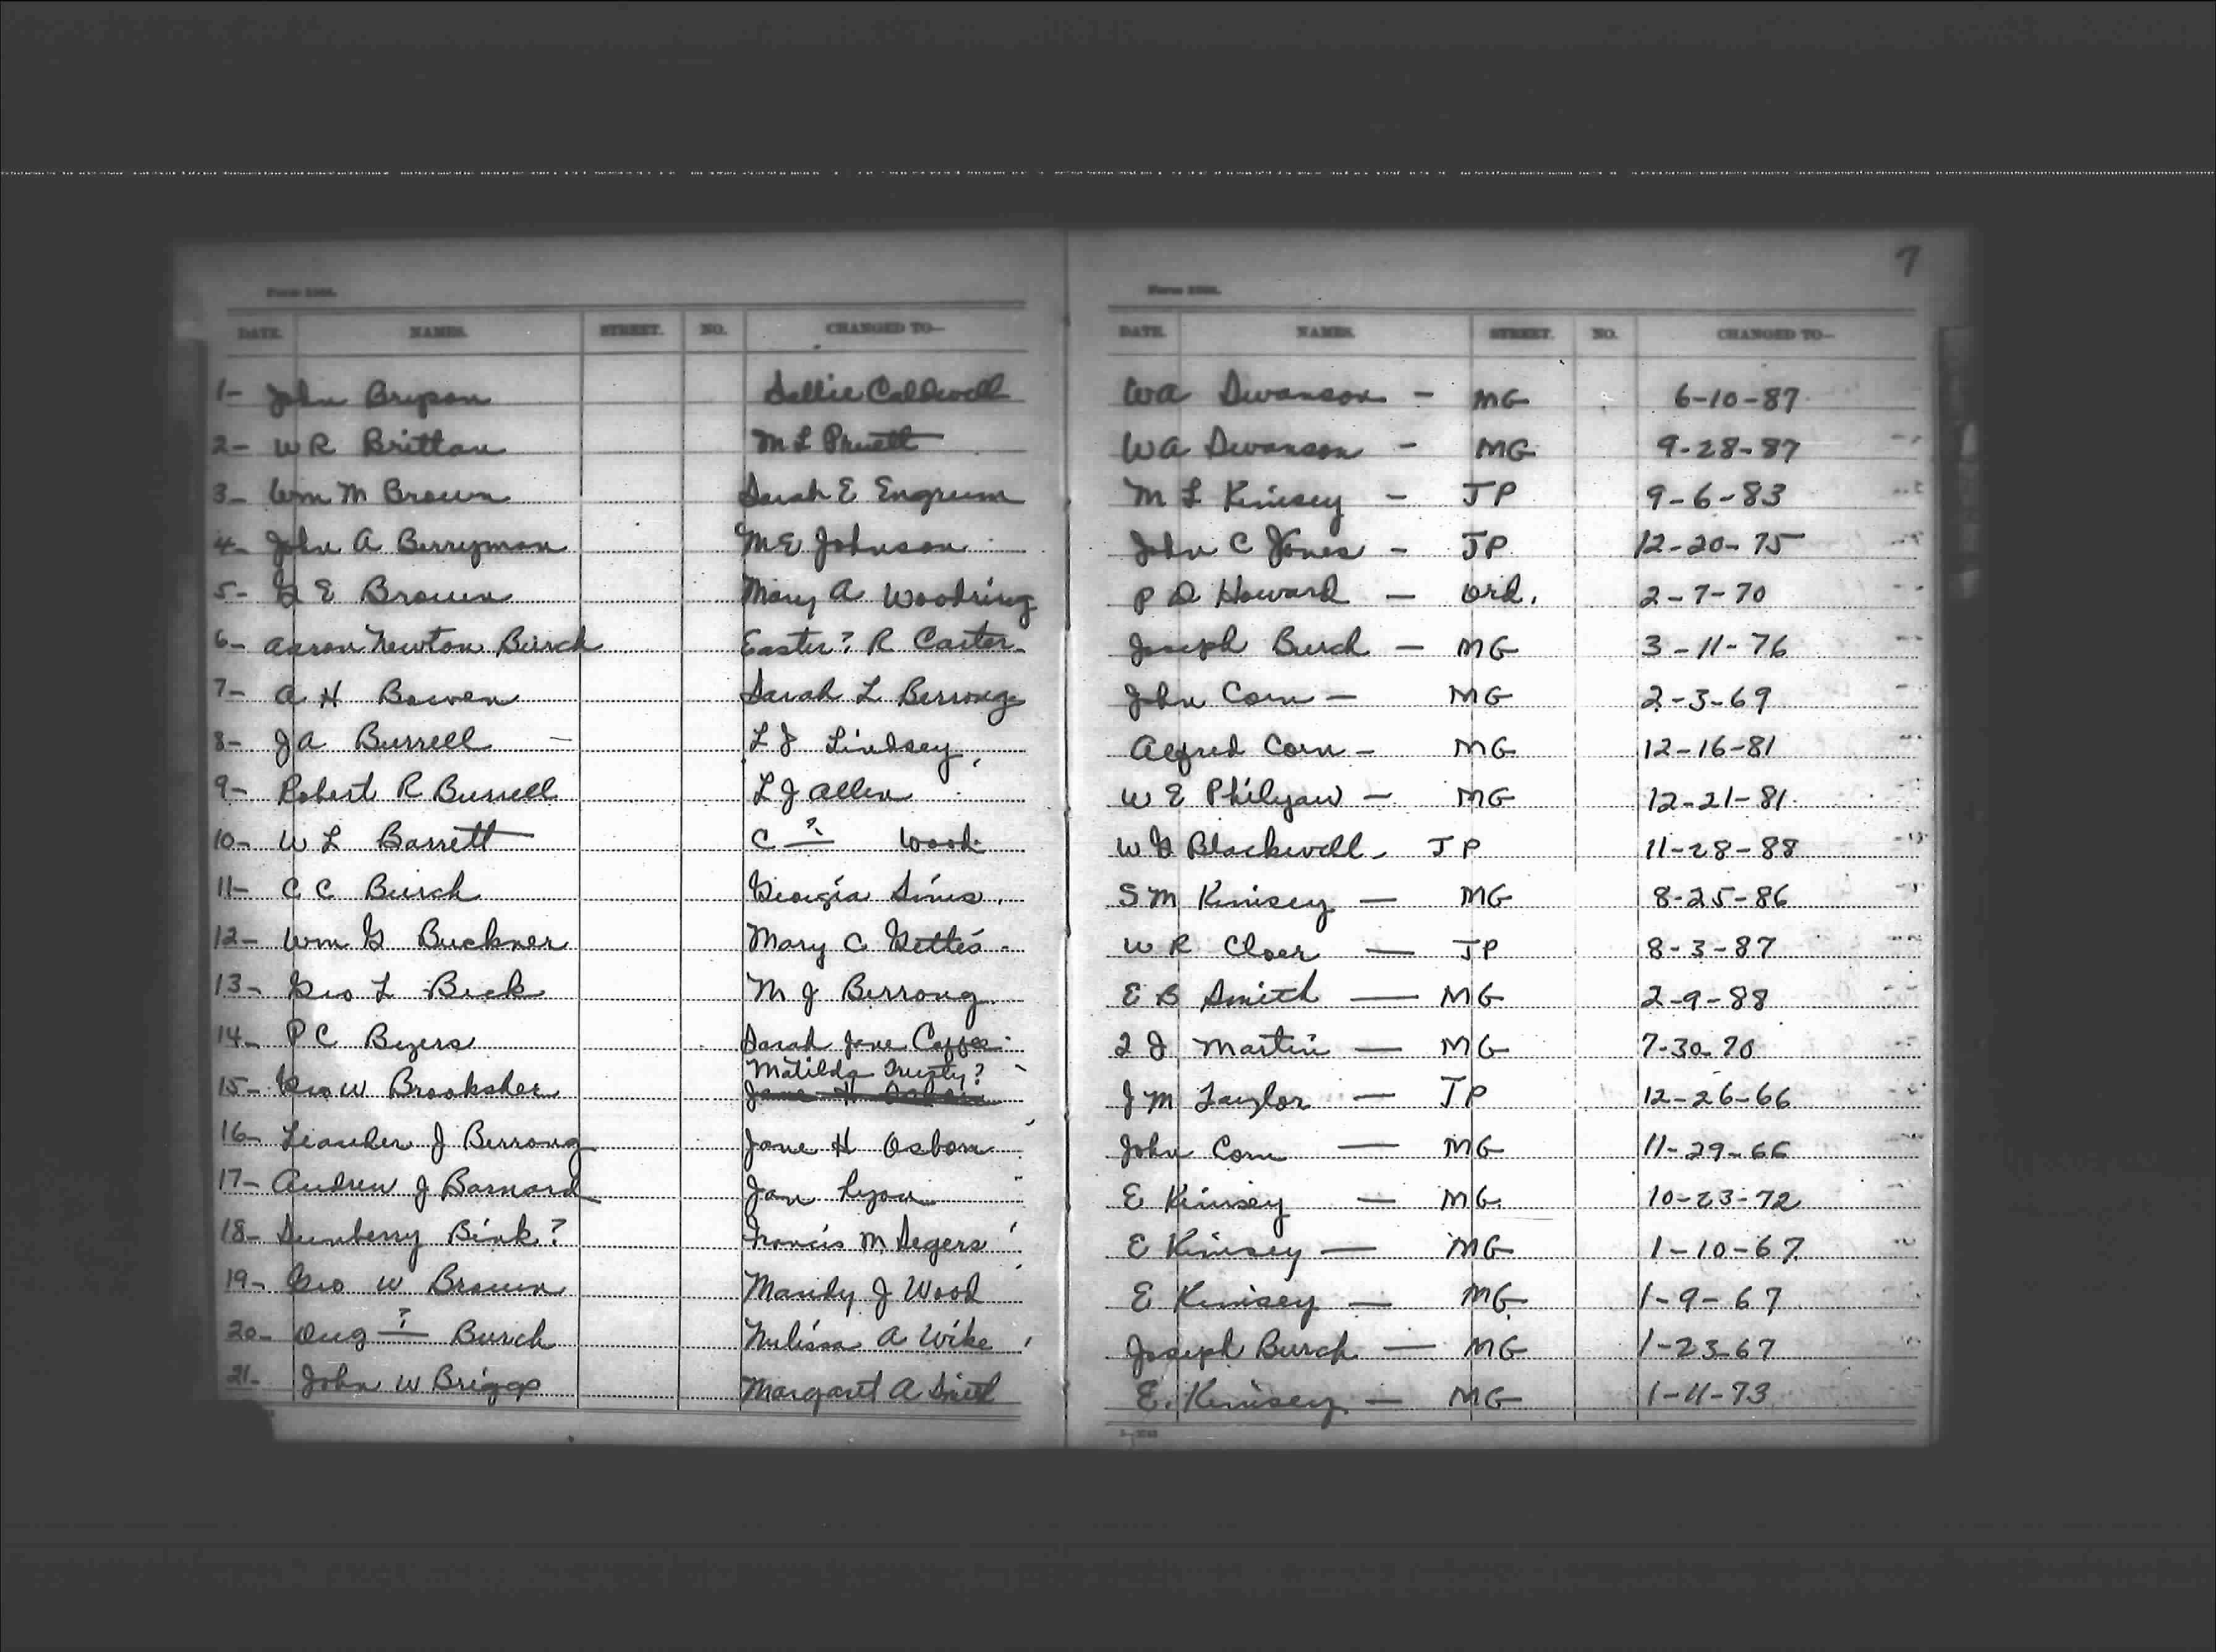 7
DATE. NAMES. STREET. NO. CHANGED TO— DATE. NAMES. STREET. NO. CHANGED TO—
1- John Bryson Sallie Caldwell WA Swanson - MG 6-10-87
2- W R Brittan M L Pruett WA Swanson - MG 9-28-87
3- Wm M Brown Sarah E Engrum M L Kinsey - JP 9-6-83
4- John A Berryman M E Johnson John C Jones - JP 12-20-75
5- G E Brown Mary A Woodring P D Howard - Ord. 2-7-70
6- Aaron Newton Burch Easter? R Carter Joseph Burch - MG 3-11-76
7- A H Bowen Sarah L Berrong John Corn - MG 2-3-69
8- J A Burrell - L J Lindsey Alfred Corn - MG 12-16-81
9- Robert R Burrell L J Allen W E Philyaw - MG 12-21-81
10- W L Barrett C ? Wood W G Blackwell - JP 11-28-88
11- C C Burch Georgia Sims S M Kinsey - MG 8-25-86
12- Wm G Buckner Mary C Gettis W R Cloer - JP 8-3-87
13- Geo L Beck M J Berrong E B Smith - MG 2-9-88
14- P C Byers Sarah Jane J Martin - MG 7-30-70
Matilda Trusty?
15- Geo W Brooksher J M Taylor - JP 12-26-66
16- Leander J Berrong Jane H Osborn John Corn - MG 11-29-66
17- Andrew J Barnard Jane Lyon E Kinsey - MG 10-23-72
18- Dunberry Bink? Francis M Segers E Kinsey - MG 1-10-67
19- Geo W Brown Mandy J Wood E Kinsey - MG 1-9-67
20- Aug ? Burch Melissa A Wike Joseph Burch - MG 1-23-67
21- John W Briggs Margaret A Smith E. Kinsey - MG 1-11-73